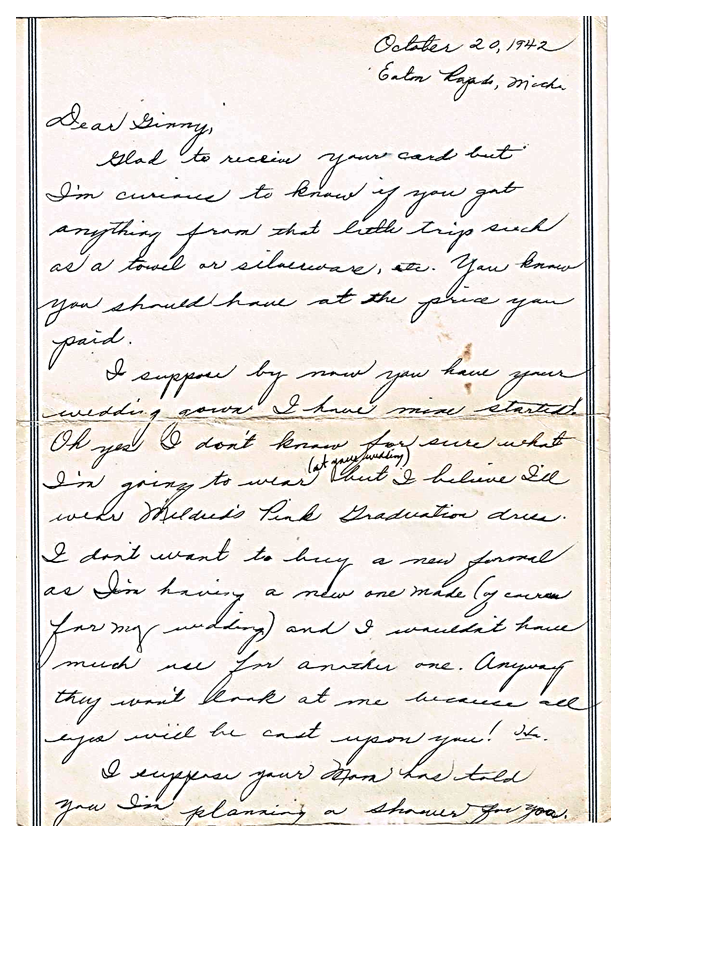 October 20, 1942
Eaton Rapids, Mich.
Dear Ginny,
Glad to receive your card but
I'm curious to know if you got
anything from that little trip such
as a towel or silverware, etc. You know
you should have at the price you
paid.
I suppose by now you have your
wedding gown. I have mine started!
Oh yes, I don't know for sure what
(at your wedding)
I'm going to wear but I believe I'll
wear Mildred's Pink Graduation dress.
I don't want to buy a new formal
as I'm having a new one made (of course
for my wedding) and I wouldn't have
much use for another one. Anyway
they won't look at me because all
eyes will be cast upon you! Ha.
I suppose your Mom has told
you I'm planning a shower for you.